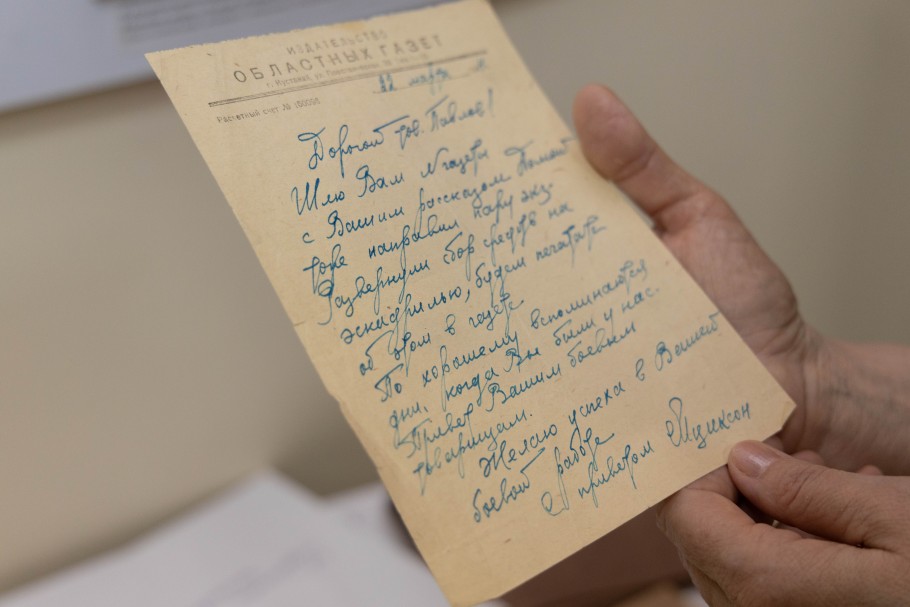 ИЗДАТЕЛЬСТВО
ОБЛАСТНЫХ ГАЗЕТ
г. Кустанай, ул.
22 марта
Расчетный счет № 150005
Дорогой тов. Павлов!
Шлю Вам № газеты
с Вашим рассказом.
направил пару экз.
Развернули сбор средств на
эскадрилью, будем печатать
об этом в газете
По хорошему вспоминаются
дни, когда Вы были у нас.
Привет Вашим боевым
товарищам.
Желаю успеха в Вашей
боевой работе
С приветом